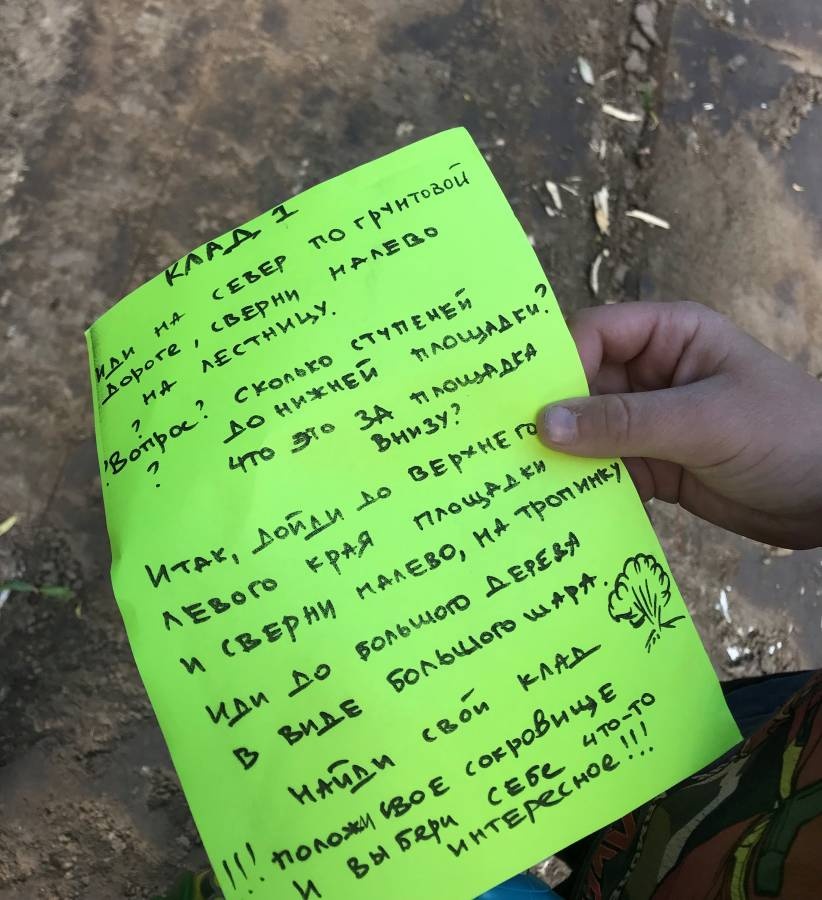 КЛАД 1
ИДИ НА СЕВЕР ПО ГРУНТОВОЙ
ДОРОГЕ, СВЕРНИ НАЛЕВО
НА ЛЕСТНИЦУ.
?
?Вопрос? СКОЛЬКО СТУПЕНЕЙ
? ДО НИЖНЕЙ ПЛОЩАДКИ?
ЧТО ЭТО ЗА ПЛОЩАДКА
ВНИЗУ?
ИТАК, ДОЙДИ ДО ВЕРХНЕГО
ЛЕВОГО КРАЯ ПЛОЩАДКИ
И СВЕРНИ НАЛЕВО, НА ТРОПИНКУ
ИДИ ДО БОЛЬШОГО ДЕРЕВА
В ВИДЕ БОЛЬШОГО ШАРА.
НАЙДИ СВОЙ КЛАД
!!! ПОЛОЖИ СВОЕ СОКРОВИЩЕ
И ВЫБЕРИ СЕБЕ ЧТО-ТО
ИНТЕРЕСНОЕ!!!